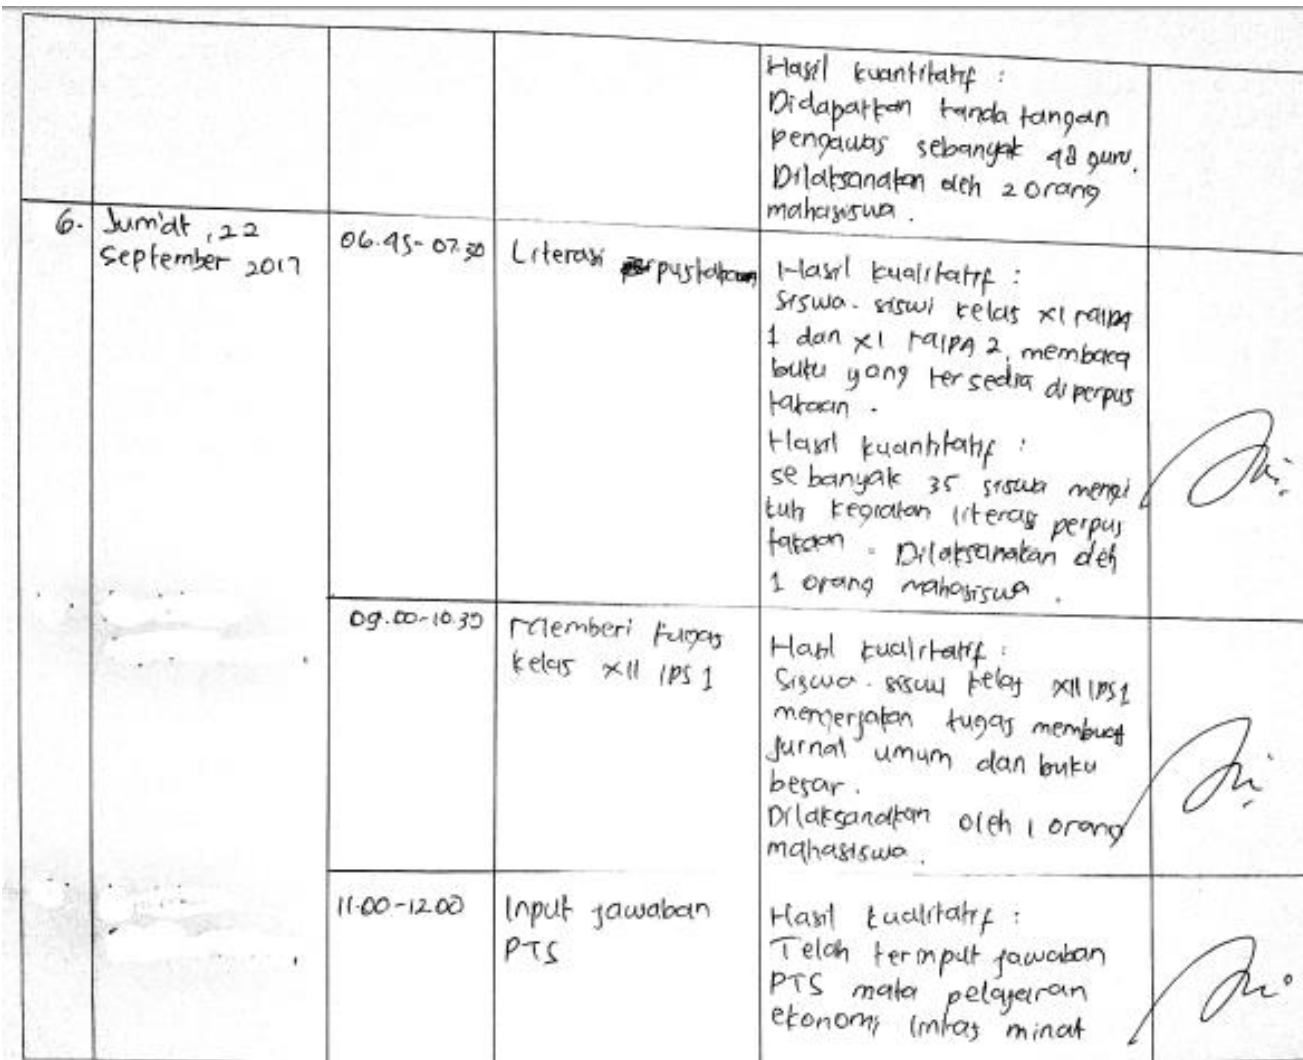 Hasil kuantitatif :
Didapatkan tanda tangan
pengawas sebanyak 48 guru.
Dilaksanakan oleh 2 orang
mahasiswa.
6. Jum'at, 22
September 2017
06.45-07.30
Literasi perpustakaan
Hasil kualitatif :
Siswa-siswi kelas XI MIPA
1 dan XI MIPA 2, membaca
buku yang tersedia di perpus
takaan.
Hasil kuantitatif :
sebanyak 35 siswa mengi
kuti kegiatan literasi perpus
takaan. Dilaksanakan oleh
1 orang mahasiswa.
09.00-10.30
Memberi tugas
kelas XII IPS 1
Hasil kualitatif :
Siswa-siswi kelas XII IPS 1
mengerjakan tugas membuat
jurnal umum dan buku
besar.
Dilaksanakan oleh 1 orang
mahasiswa.
11.00-12.00
Input jawaban
PTS
Hasil kualitatif :
Telah terinput jawaban
PTS mata pelajaran
ekonomi lintas minat